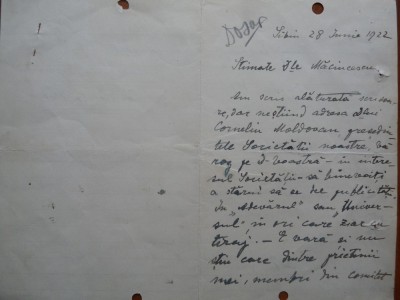 Dosar
Sibiu 28 Iunie 1922
Stimate Dle Măcincescu
Am scris alăturata
dar neștiind adresa Dlui
Corneliu Moldovan președin
tele Societății noastre, vă
rog pe D-voastră - în intere
sul Societății - să binevoiți
a stărui să se dee publicităț
In „Adevărul" sau „Univer
sul" în ori care ziar cu
tiraj. - E vară și nu
știu care dintre prietenii
mei, membri din comitet